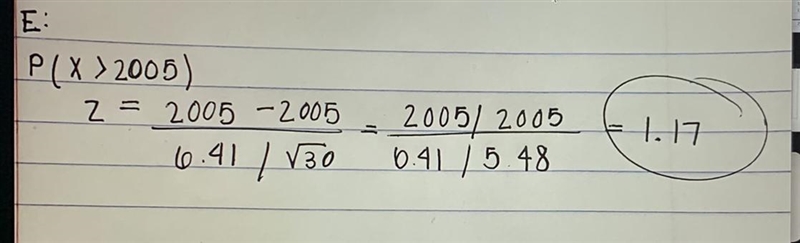 E:
P(X > 2005)
Z = 2005 - 2005 / 6.41 / √30 = 2005 / 2005 / 6.41 / 5.48 = 1.17